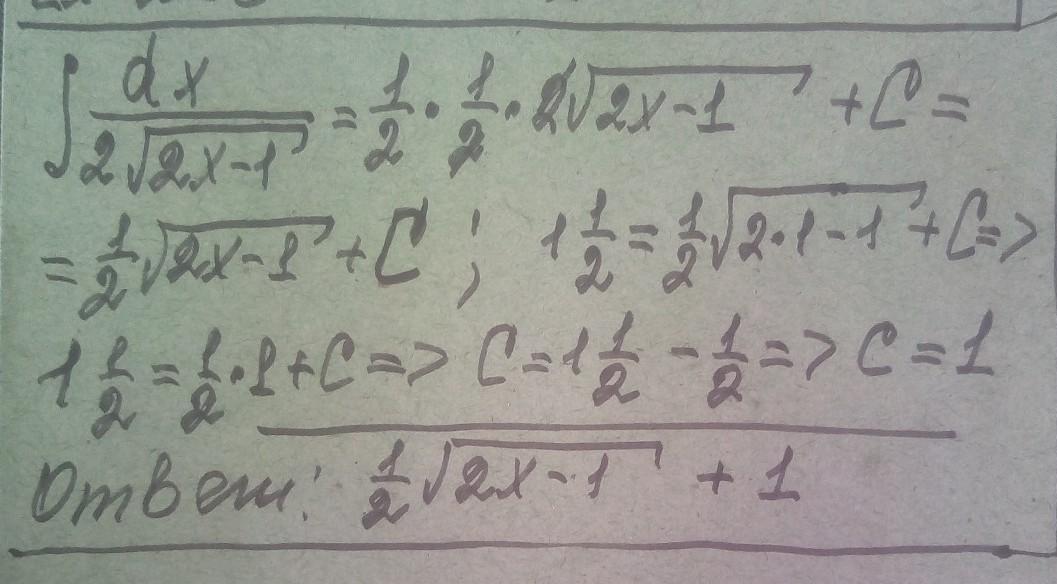 ∫ dx/(2√(2x-1)) = 1/2 · 1/2 · 2√(2x-1) + C =
= 1/2 √(2x-1) + C ; 1 1/2 = 1/2 √(2·1-1) + C =>
1 1/2 = 1/2 · 1 + C => C = 1 1/2 - 1/2 => C = 1
Ответ: 1/2 √(2x-1) + 1